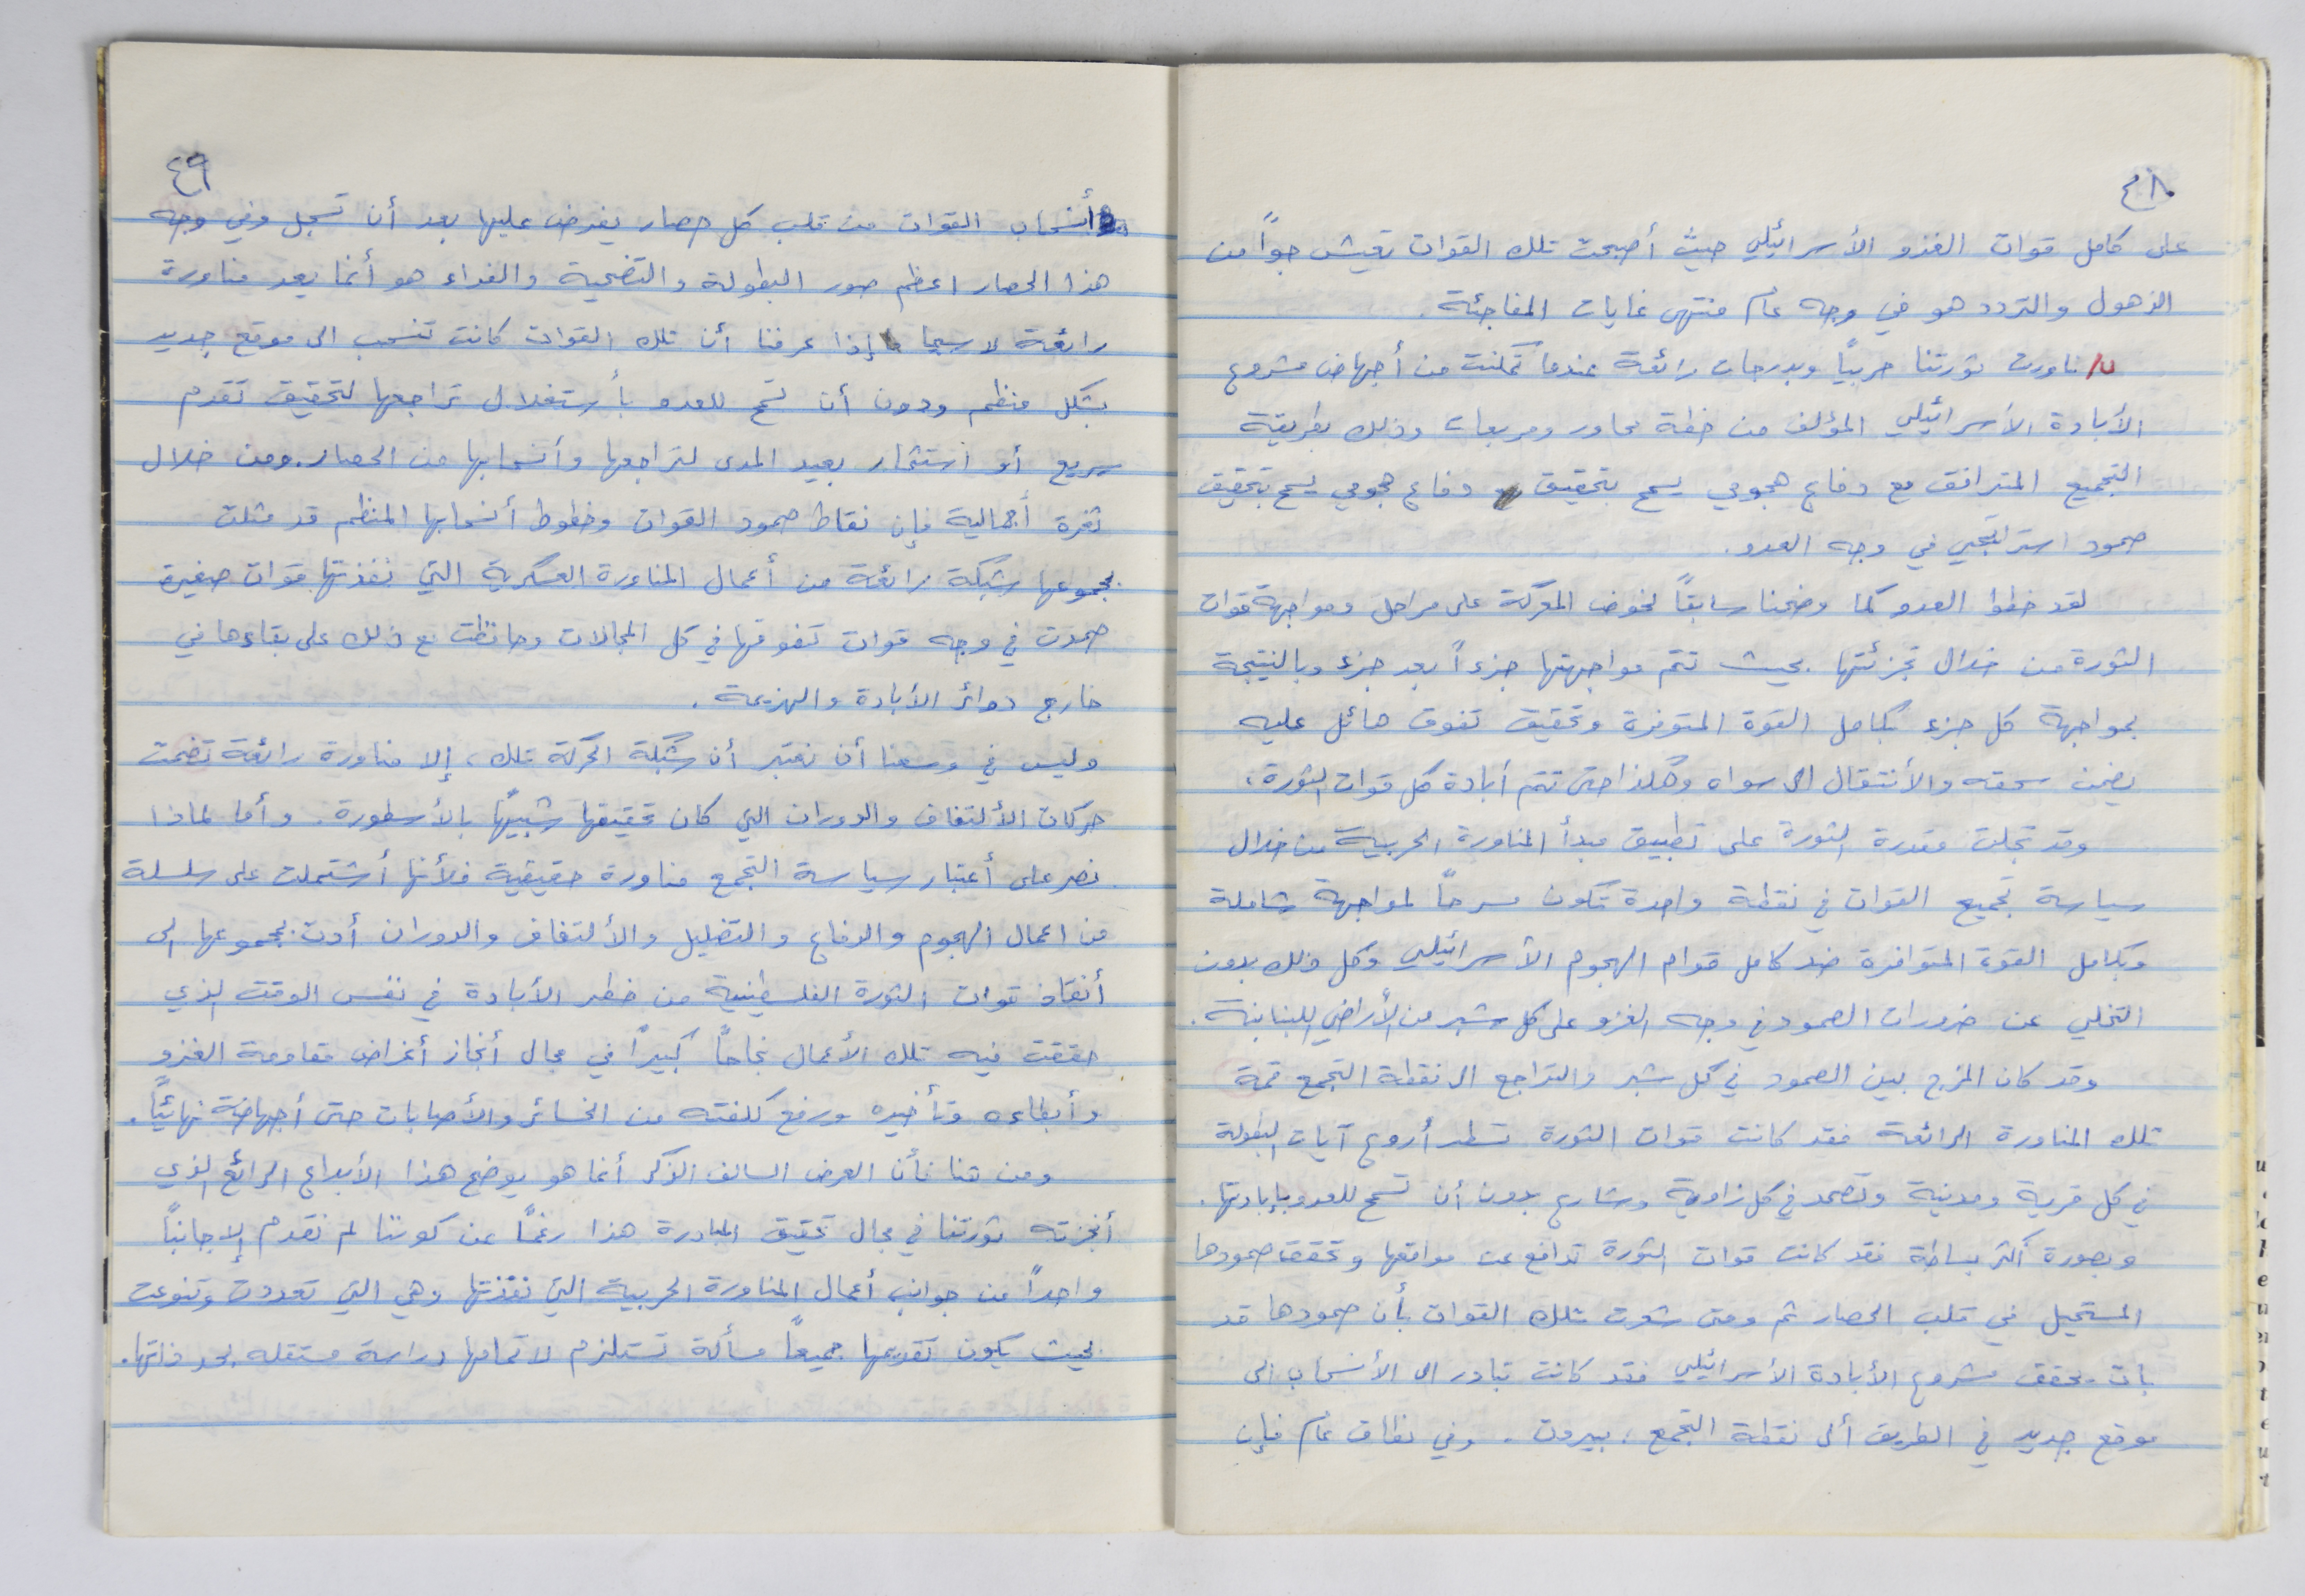 ٤٨
على كامل قوات الغزو الأسرائيلي حيث أصبحت تلك القوات تعيش جواً من
الذهول والتردد هو في وجه عام منتهى غايات المفاجئة.
ناورت ثورتنا حربياً وبدرجات رائعة عندما تمكنت من أجهاض مشروع
الأبادة الأسرائيلي المؤلف من خطة محاور ومربعات وذلك بطريقة
التجميع المترافق مع دفاع هجومي يسمح بتحقيق دفاع هجومي يسمح بتحقيق
صمود استراتيجي في وجه العدو.
لقد خطط العدو كما وضحنا سابقاً لخوض المعركة على مراحل ومواجهة قوات
الثورة من خلال تجزئتها بحيث تتم مواجهتها جزءاً بعد جزء وبالنتيجة
بمواجهة كل جزء بكامل القوة المتوفرة وتحقيق تفوق هائل عليه
يضمن سحقه والأنتقال الى سواه وهكذا حتى تتم أبادة كل قوات الثورة،
وقد تجلت مقدرة الثورة على تطبيق مبدأ المناورة الحربية من خلال
سياسة تجميع القوات في نقطة واحدة تكون مسرحاً لمواجهة شاملة
وبكامل القوة المتوافرة ضد كامل قوام الهجوم الأسرائيلي وكل ذلك بدون
التخلي عن ضرورات الصمود في وجه الغزو على كل شبر من الأراضي اللبنانية.
وقد كان المزج بين الصمود في كل شبر والتراجع الى نقطة التجمع قمة
تلك المناورة الرائعة فقد كانت قوات الثورة تسطر أروع آيات البطولة
في كل قرية ومدينة وتصمد في كل زاوية وشارع بدون أن تسمح للعدو بإبادتها.
وبصورة أكثر بساطة فقد كانت قوات الثورة تدافع عن مواقعها وتحقق صمودها
المستحيل في قلب الحصار ثم ومتى شعرت تلك القوات بأن صمودها قد
بات يحقق مشروع الأبادة الأسرائيلي فقد كانت تبادر الى الأنسحاب الى
موقع جديد في الطريق ألى نقطة التجمع، بيروت. وفي نطاق عام فإن
٤٩
أنسحاب القوات من قلب كل حصار يفرض عليها بعد أن تسجل وفي وجه
هذا الحصار اعظم صور البطولة والتضحية والفداء هو أنما يعد مناورة
رائعة لا سيما إذا عرفنا أن تلك القوات كانت تنسحب الى موقع جديد
بشكل منظم ودون أن تسمح للعدو بأستغلال تراجعها لتحقيق تقدم
سريع أو استثمار بعيد المدى لتراجعها وأنسحابها من الحصار. ومن خلال
نظرة أجمالية فإن نقاط صمود القوات وخطوط أنسحابها المنظم قد مثلت
بمجموعها شبكة رائعة من أعمال المناورة العسكرية التي نفذتها قوات صغيرة
صمدت في وجه قوات تفوقها في كل المجالات وحافظت مع ذلك على بقاءها في
خارج دوائر الأبادة والهزيمة.
وليس في وسعنا أن نعتبر أن شبكة الحركة تلك، إلا مناورة رائعة تضمنت
حركات الألتفاف والدوران التي كان تحقيقها شبيهاً بالأسطورة. وأما لماذا
نصر على أعتبار سياسة التجمع مناورة حقيقية فلأنها أشتملت على سلسلة
من اعمال الهجوم والدفاع والتضليل والألتفاف والدوران أدت بمجموعها الى
أنقاذ قوات الثورة الفلسطينية من خطر الأبادة في نفس الوقت الذي
حققت فيه تلك الأعمال نجاحاً كبيراً في مجال أنجاز أغراض مقاومة الغزو
وأبطاءه وتأخيره ورفع كلفته من الخسائر والأصابات حتى أجهاضه نهائياً.
ومن هنا فأن العرض السالف الذكر أنما هو يوضح هذا الأبداع الرائع الذي
أنجزته ثورتنا في مجال تحقيق المبادرة هذا رغماً عن كوننا لم نقدم إلا جانباً
واحداً من جوانب أعمال المناورة الحربية التي نفذتها وهي التي تعددت وتنوعت
بحيث يكون تقديمها جميعاً مسألة تستلزم لاتمامها دراسة مستقله بحد ذاتها.